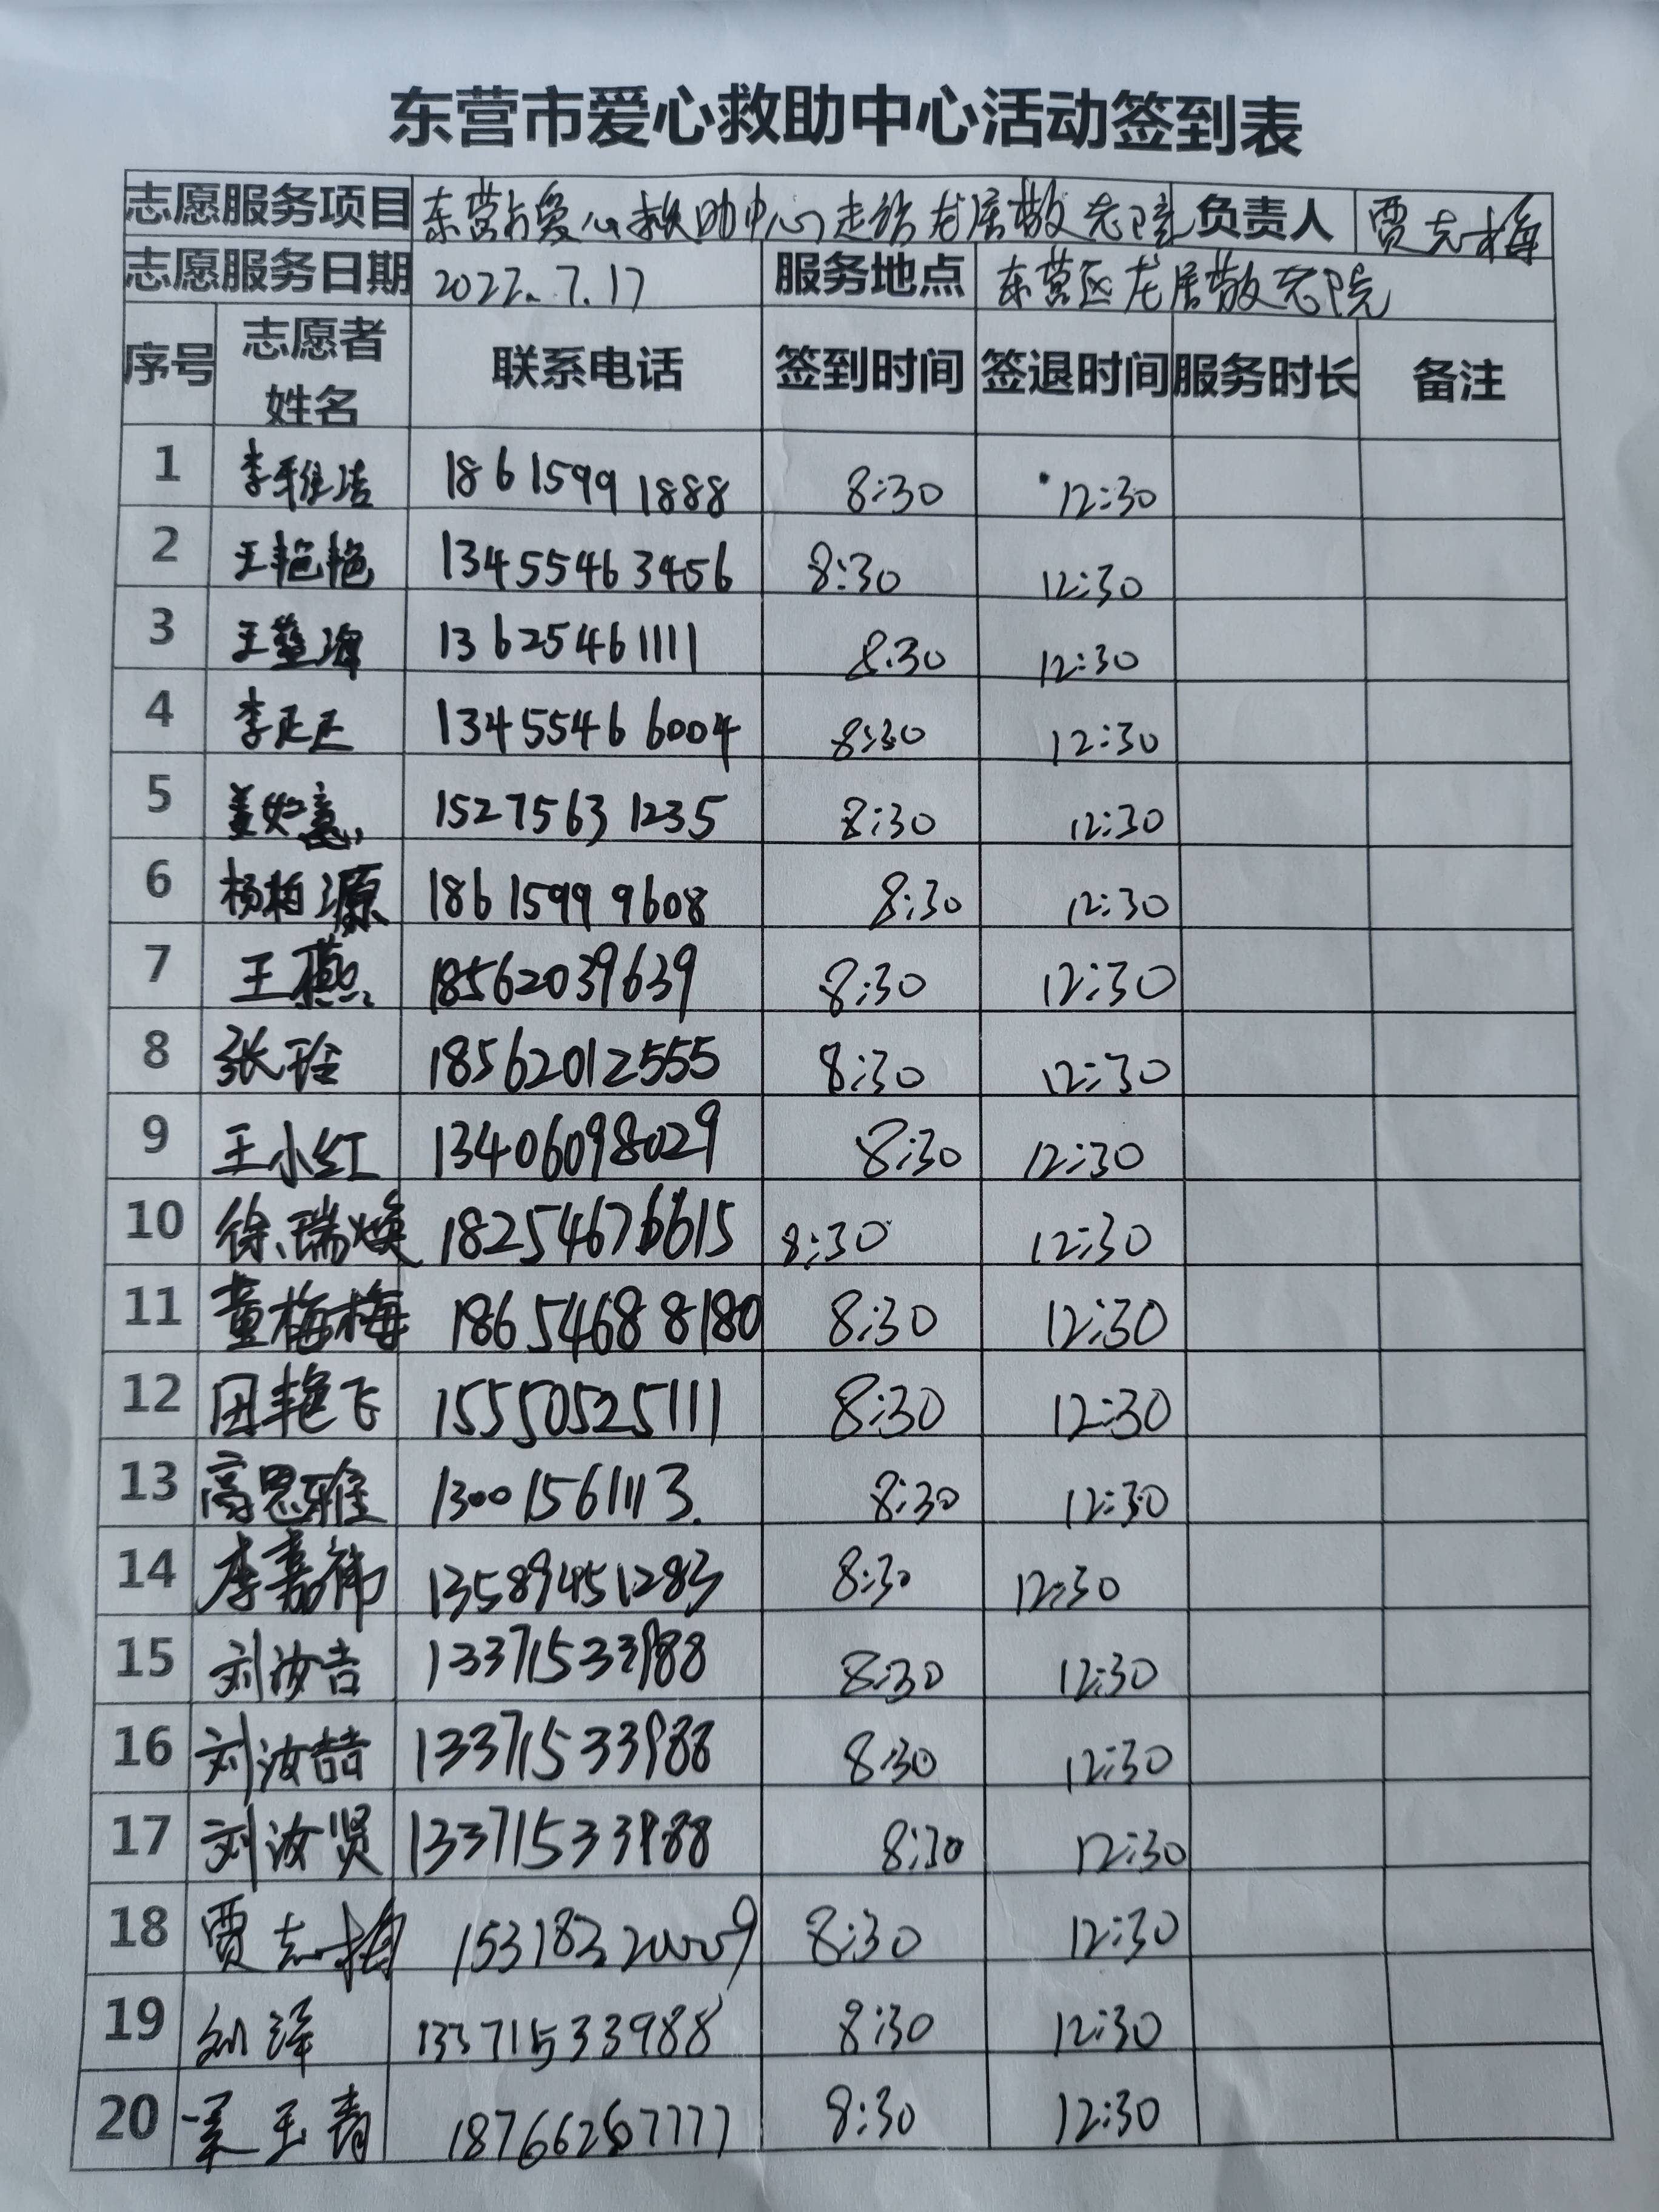 东营市爱心救助中心活动签到表
志愿服务项目 东营市爱心救助中心走访龙居敬老院 负责人 贾志梅
志愿服务日期 2022.7.17 服务地点 东营区龙居敬老院
序号 志愿者姓名 联系电话 签到时间 签退时间 服务时长 备注
1 李雅洁 18615991888 8:30 12:30
2 王艳艳 13455463456 8:30 12:30
3 王慧海 13625461111 8:30 12:30
4 李正正 13455466004 8:30 12:30
5 姜如意 15275631235 8:30 12:30
6 杨柏源 18615999608 8:30 12:30
7 王燕 18562039639 8:30 12:30
8 张玲 18562012555 8:30 12:30
9 王小红 13406098029 8:30 12:30
10 徐瑞焕 18254676615 8:30 12:30
11 董梅梅 18654688180 8:30 12:30
12 田艳飞 15550525111 8:30 12:30
13 高思雅 13001561113 8:30 12:30
14 李嘉伟 13589451283 8:30 12:30
15 刘汝吉 13371533988 8:30 12:30
16 刘汝喆 13371533988 8:30 12:30
17 刘汝贤 13371533988 8:30 12:30
18 贾志梅 15318320009 8:30 12:30
19 刘泽 13371533988 8:30 12:30
20 玉青 18766267777 8:30 12:30